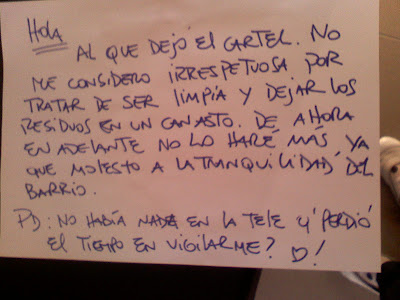 HOLA
AL QUE DEJÓ EL CARTEL. NO
ME CONSIDERO IRRESPETUOSA POR
TRATAR DE SER LIMPIA Y DEJAR LOS
RESIDUOS EN UN CANASTO. DE AHORA
EN ADELANTE NO LO HARÉ MÁS YA
QUE MOLESTO A LA TRANQUILIDAD DEL
BARRIO.
PD: NO HABÍA NADA EN LA TELE Y PERDIÓ
EL TIEMPO EN VIGILARME? !